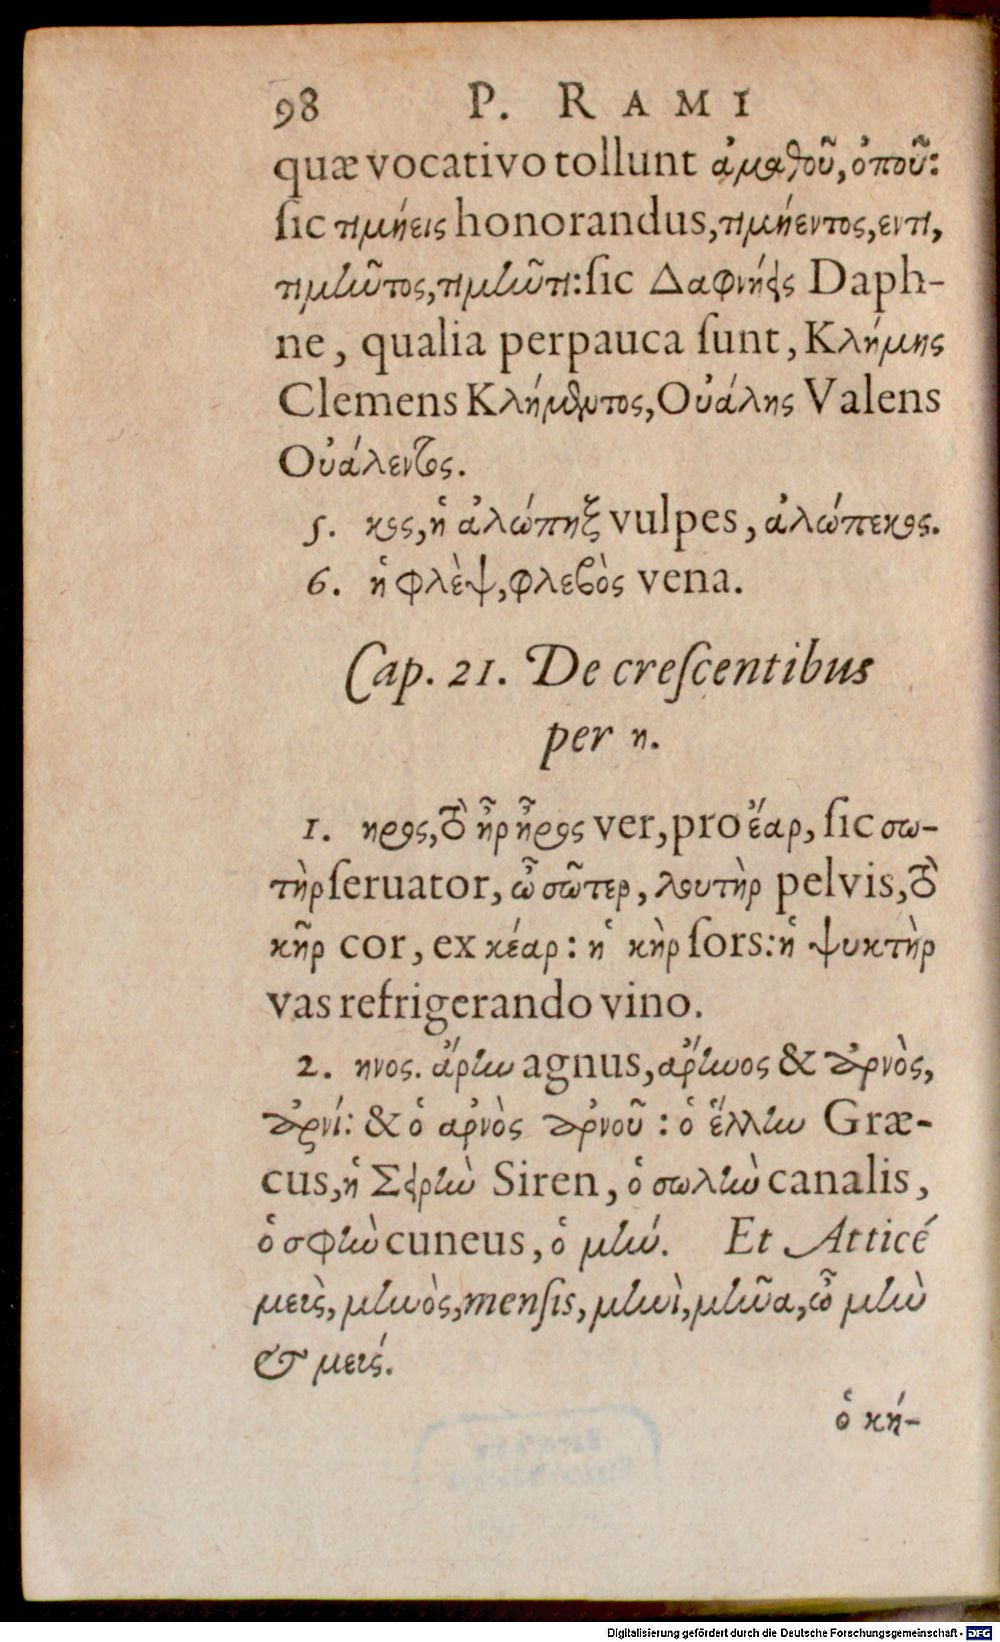 98 P. RAMI
quæ vocativo tollunt ἀμαθοῦ, ὀποῦ:
sic τιμήεις honorandus, τιμήεντος, εντι,
τιμῆντος, τιμῆντι: sic Δαφνήεις Daph-
ne, qualia perpauca sunt, Κλήμης
Clemens Κλήμεντος, Οὐάλης Valens
Οὐάλεντος.
5. κος, ἡ ἀλώπηξ vulpes, ἀλώπεκος.
6. ἡ φλὲψ, φλεβὸς vena.
Cap. 21. De crescentibus
per η.
1. ηρος, τὸ ἦρ ἦρος ver, pro ἔαρ, sic σω-
τὴρ seruator, ὦ σῶτερ, λουτὴρ pelvis, τὸ
κῆρ cor, ex κέαρ: ἡ κὴρ sors: ἡ ψυκτὴρ
vas refrigerando vino.
2. ηνος. ἄρην agnus, ἄρηνος & ἀρνὸς,
ἀρνί: & ὁ ἀρνὸς ἀρνοῦ: ὁ ἕλλην Græ-
cus, ἡ Σειρὴν Siren, ὁ σωλὴν canalis,
ὁ σφὴν cuneus, ὁ μήν. Et Atticé
μεὶς, μηνὸς, mensis, μηνὶ, μῆνα, ὦ μὴν
& μείς.
ὁ κή-
Digitalisierung gefördert durch die Deutsche Forschungsgemeinschaft - DFG